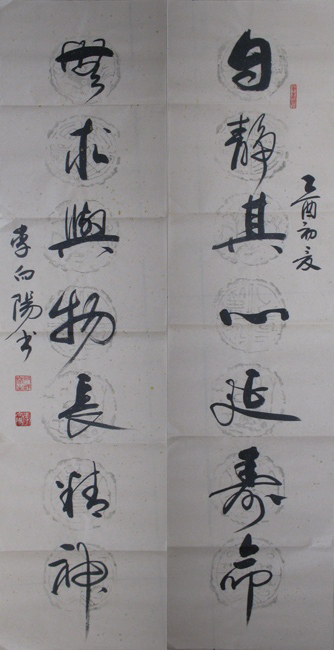 自静其心延寿命
乙酉初夏
無求與物長精神
李向陽书